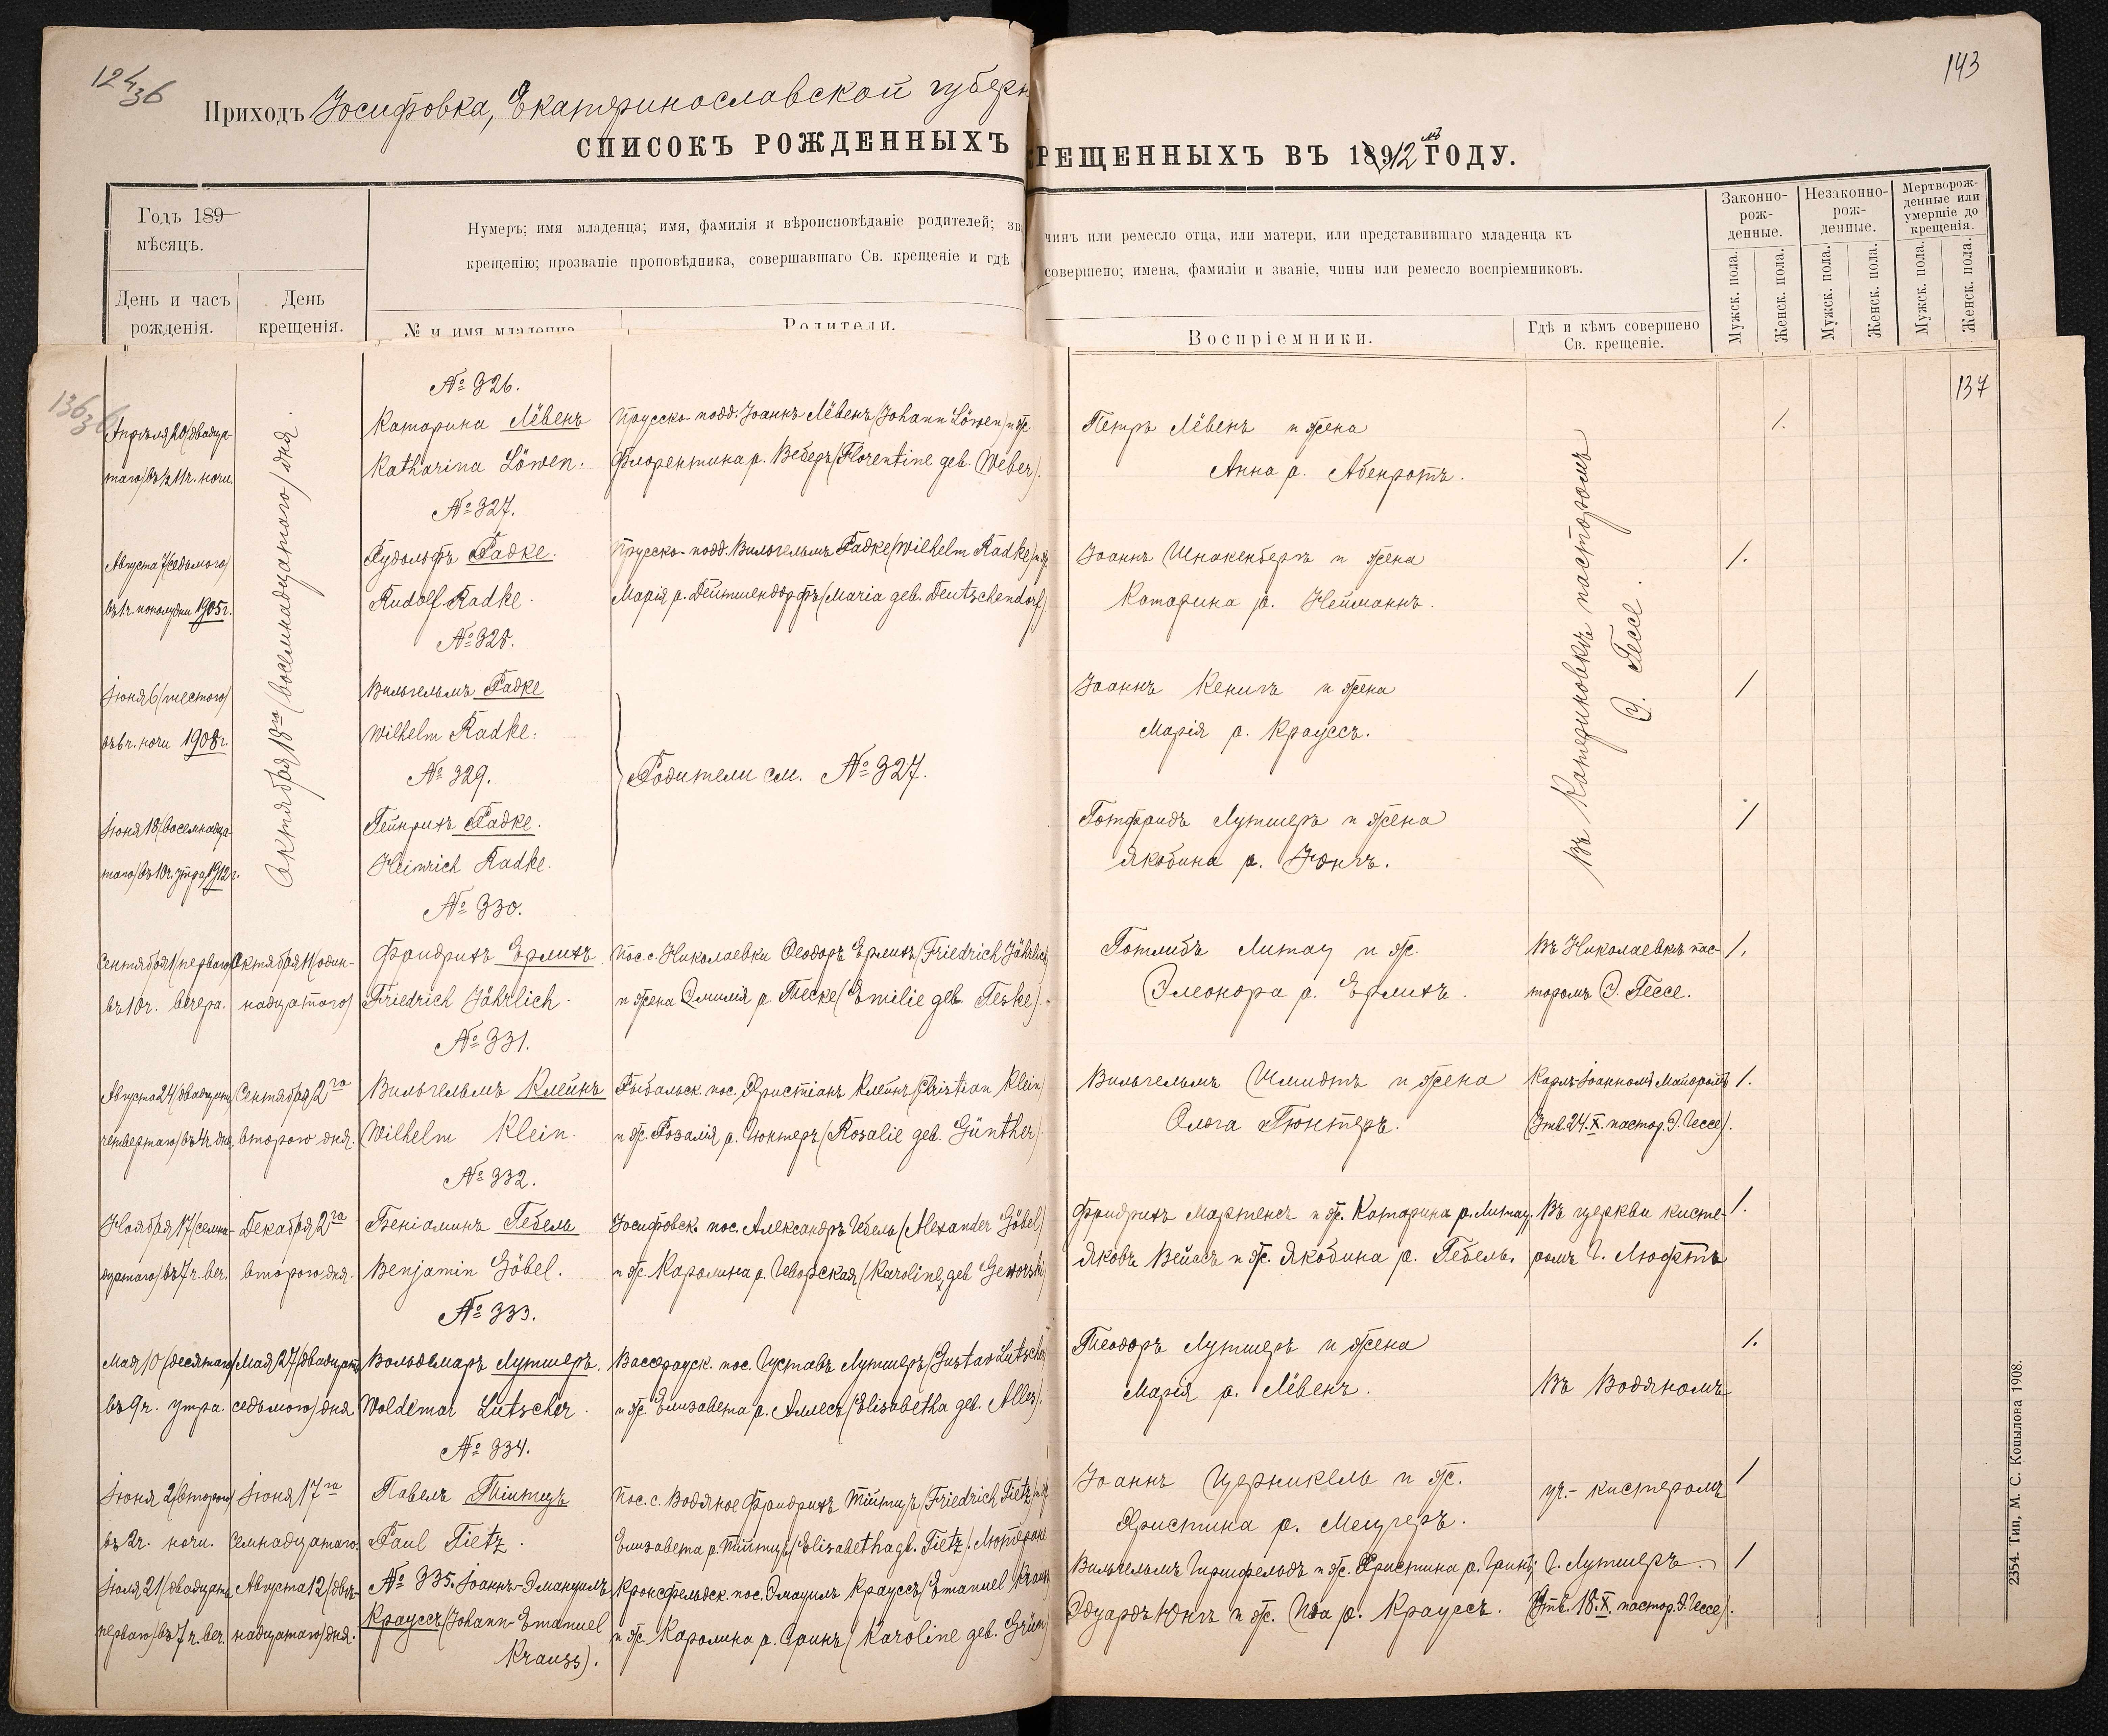 124/36
143
Приходъ Іосифовка, Екатеринославской губерн
СПИСОКЪ РОЖДЕННЫХЪ КРЕЩЕННЫХЪ ВЪ 18912 мъ ГОДУ.
Годъ 189
мѣсяцъ.
Нумеръ; имя младенца; имя, фамилія и вѣроисповѣданіе родителей; зв чинъ или ремесло отца, или матери, или представившаго младенца къ
крещенію; прозваніе проповѣдника, совершавшаго Св. крещеніе и гдѣ совершено; имена, фамиліи и званіе, чины или ремесло воспріемниковъ.
День и часъ рожденія.
День крещенія.
№ и имя младенца
Родители.
Воспріемники.
Гдѣ и кѣмъ совершено Св. крещеніе.
Законно-рож-денные.
Незаконно-рож-денные.
Мертворож-денные или умершіе до крещенія.
Мужск. пола.
Женск. пола.
Мужск. пола.
Женск. пола.
Мужск. пола.
Женск. пола.
136
137
№ 326.
Апрѣля 20 (двадца-
таго) въ ½11 ч. ночи.
Октября 18го (восемнадцатаго) дня.
Катарина Лёвенъ
Katharina Löwen.
Прусско-подд. Іоаннъ Лёвенъ (Johann Löwen) и ж.
Флорентина р. Веберъ (Florentine geb. Weber).
Петръ Лёвенъ и жена
Анна р. Абенротъ.
Въ Катериновкѣ пасторомъ
Э. Гессе.
1.
№ 327.
Августа 7 (седьмого)
въ 1 ч. пополудни 1905 г.
Рудольфъ Радке.
Rudolf Radke.
Прусско-подд. Вильгельмъ Радке (Wilhelm Radke) и ж.
Марія р. Дейтшендорфъ (Maria geb. Deutschendorf)
Іоаннъ Шнакенбергъ и жена
Катарина р. Нейманнъ.
1.
№ 328.
Іюня 6 (шестого)
въ 6 ч. ночи 1908 г.
Вильгельмъ Радке
Wilhelm Radke.
Родители см. № 327.
Іоаннъ Кенигъ и жена
Марія р. Крауссъ.
1
№ 329.
Іюня 18 (восемнадца-
таго) въ 10 ч. утра 1912 г.
Гейнрихъ Радке.
Heinrich Radke.
Готфридъ Лутшеръ и жена
Якобина р. Юнгъ.
1
№ 330.
Сентября 1 (перваго)
въ 10 ч. вечера.
Октября 11 (один-
надцатаго)
Фридрихъ Ерлихъ
Friedrich Jährlich.
Пос. с. Николаевки Ѳеодоръ Ерлихъ (Friedrich Jährlich
и жена Эмилія р. Теске (Emilie geb. Teske).
Готлибъ Литау и ж.
Элеонора р. Ерлихъ.
Въ Николаевкѣ пас-
торомъ Э. Гессе.
1.
№ 331.
Августа 24 (двадцать
четвертаго) въ 4 ч. дня.
Сентября 2го
второго дня.
Вильгельмъ Клейнъ
Wilhelm Klein.
Рыбальск. пос. Христіанъ Клейнъ (Christian Klein)
и ж. Розалія р. Гюнтеръ (Rosalie geb. Günther).
Вильгельмъ Шмидтъ и жена
Ольга Гюнтеръ.
Карл-Іоанномъ Майоромъ
(Утв. 24.X. пастор. Э. Гессе).
1.
№ 332.
Ноября 17 (семна-
дцатаго) въ 7 ч. веч.
Декабря 2го
второго дня.
Беніаминъ Гебель
Benjamin Göbel.
Іосифовск. пос. Александръ Гебель (Alexander Göbel)
и ж. Каролина р. Геворская (Karoline geb Geworski)
Фридрихъ Мартенсъ и ж. Катарина р. Литау.
Яковъ Вейссъ и ж. Якобина р. Гебель.
Въ церкви кисте-
ромъ Г. Люфтъ
1.
№ 333.
Мая 10 (десятаго)
въ 9 ч. утра.
Мая 27 (двадцать
седьмого) дня
Вольдемаръ Лутшеръ.
Woldemar Lutscher.
Вассерауск. пос. Густавъ Лутшеръ (Gustav Lutscher
и ж. Елизавета р. Аллесъ (Elisabetha geb. Alles).
Теодоръ Лутшеръ и жена
Марія р. Лёвенъ.
Въ Водяномъ
1.
№ 334.
Іюня 2 (второго)
въ 2 ч. ночи.
Іюня 17го
семнадцатаго
Павелъ Тітцъ
Paul Tietz.
Пос. с. Водяное Фридрихъ Тітцъ (Friedrich Tietz) и ж
Елизавета р. Тітцъ (Elisabetha gb. Tietz). Лютеране
Іоаннъ Церникель и ж.
Христина р. Мецгеръ.
уч.-кистеромъ
1
Іюля 21 (двадцать
перваго) въ 7 ч. веч.
Августа 12 (двѣ-
надцатаго) дня.
№ 335. Іоаннъ-Эмануилъ
Крауссъ (Johann-Emanuel
Krauss).
Кронсфельдск. пос. Эмануилъ Крауссъ (Emanuel Krauss
и ж. Каролина р. Гринъ (Karoline geb. Grün)
Вильгельмъ Гиршфельдъ и ж. Христина р. Гринъ;
Эдуардъ Юнгъ и ж. Ида р. Крауссъ.
Г. Лутшеръ.
(Утв. 18.X. пастор. Э. Гессе).
1
2354. Тип. М. С. Копылова 1908.